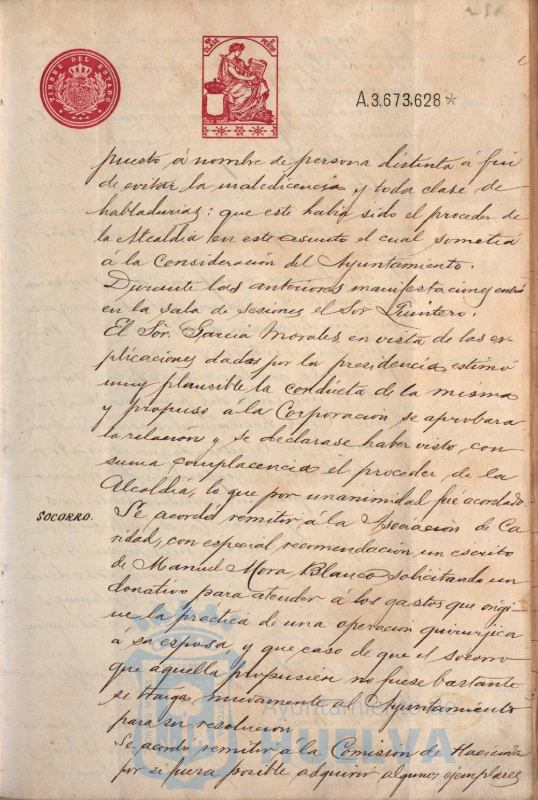 TIMBRE DEL ESTADO
CLASE
PESETAS
A.3.673.628*
puesto á nombre de persona distinta á fin
de evitar la maledicencia y toda clase de
habladurias: que este habia sido el proceder de
la Alcaldia en este asunto el cual sometia
á la consideración del Ayuntamiento.
Durante las anteriores manifestaciones entró
en la sala de sesiones el Sor Quintero.
El Sor. Garcia Morales en vista de las ex-
plicaciones dadas por la presidencia estimó
muy plausible la conducta de la misma
y propuso á la Corporación se aprobara
la relación y se declarase haber visto con
suma complacencia el proceder de la
Alcaldía, lo que por unanimidad fué acordado.
SOCORRO.
Se acordó remitir á la Asociación de Ca-
ridad, con especial recomendación un escrito
de Manuel Mora Blanco solicitando un
donativo para atender á los gastos que origi-
ne la práctica de una operación quirurjica
a su esposa, y que caso de que el socorro
que aquella propusiera no fuese bastante
se traiga nuevamente al Ayuntamiento
para su resolución
Se acordó remitir á la Comisión de Hacienda
por si fuera posible adquirir algunos ejemplares
Ayuntamiento
HUELVA